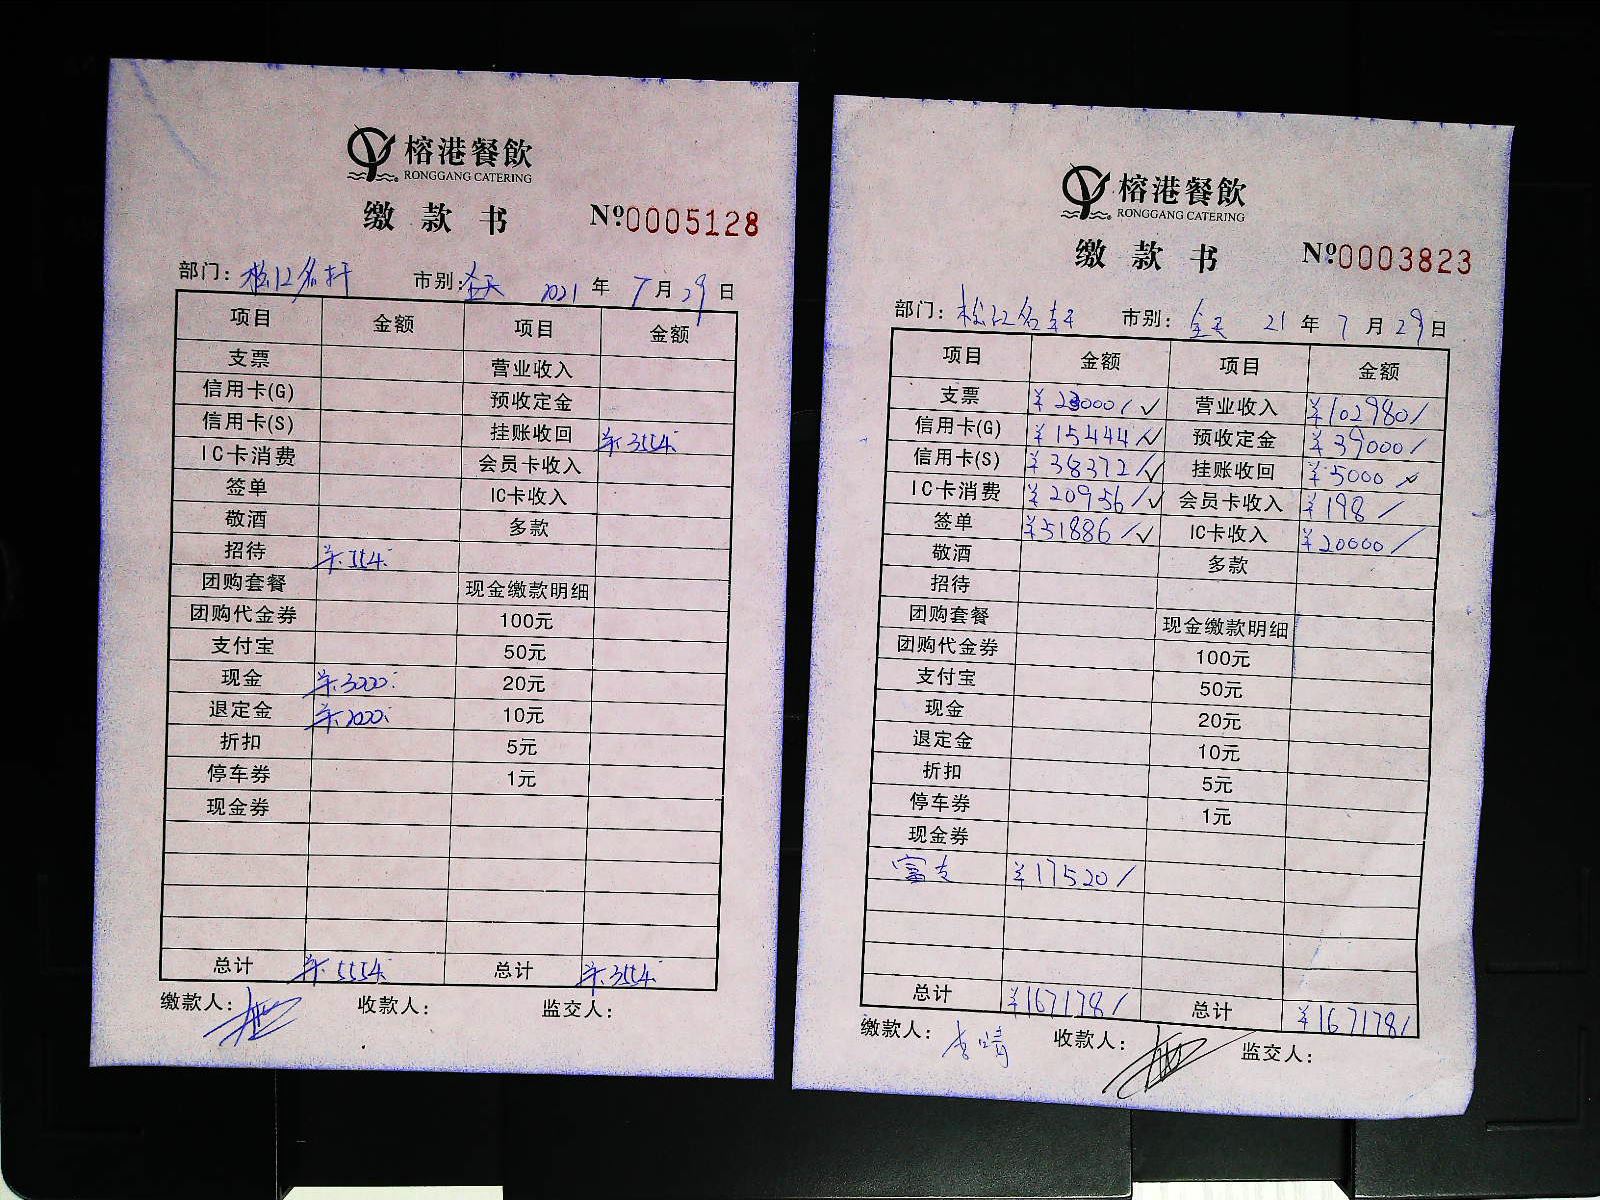 榕港餐飲
RONGGANG CATERING
缴款书 Nº0005128
部门: 松江名轩 市别: 全天 2021年7月29日
项目 金额 项目 金额
支票 营业收入
信用卡(G) 预收定金
信用卡(S) 挂账收回 ¥3554
IC卡消费 会员卡收入
签单 IC卡收入
敬酒 多款
招待 ¥554
团购套餐 现金缴款明细
团购代金券 100元
支付宝 50元
现金 ¥3000 20元
退定金 ¥2000 10元
折扣 5元
停车券 1元
现金券
总计 ¥5554 总计 ¥3554
缴款人: 收款人: 监交人:
榕港餐飲
RONGGANG CATERING
缴款书 Nº0003823
部门: 松江名轩 市别: 全天 21年7月29日
项目 金额 项目 金额
支票 ¥23000/✓ 营业收入 ¥102980/
信用卡(G) ¥15444/✓ 预收定金 ¥39000/
信用卡(S) ¥38372/✓ 挂账收回 ¥5000✓
IC卡消费 ¥20956/✓ 会员卡收入 ¥198/
签单 ¥51886/✓ IC卡收入 ¥20000/
敬酒 多款
招待
团购套餐 现金缴款明细
团购代金券 100元
支付宝 50元
现金 20元
退定金 10元
折扣 5元
停车券 1元
现金券
富友 ¥17520/
总计 ¥167178/ 总计 ¥167178/
缴款人: 李晴 收款人: 监交人: